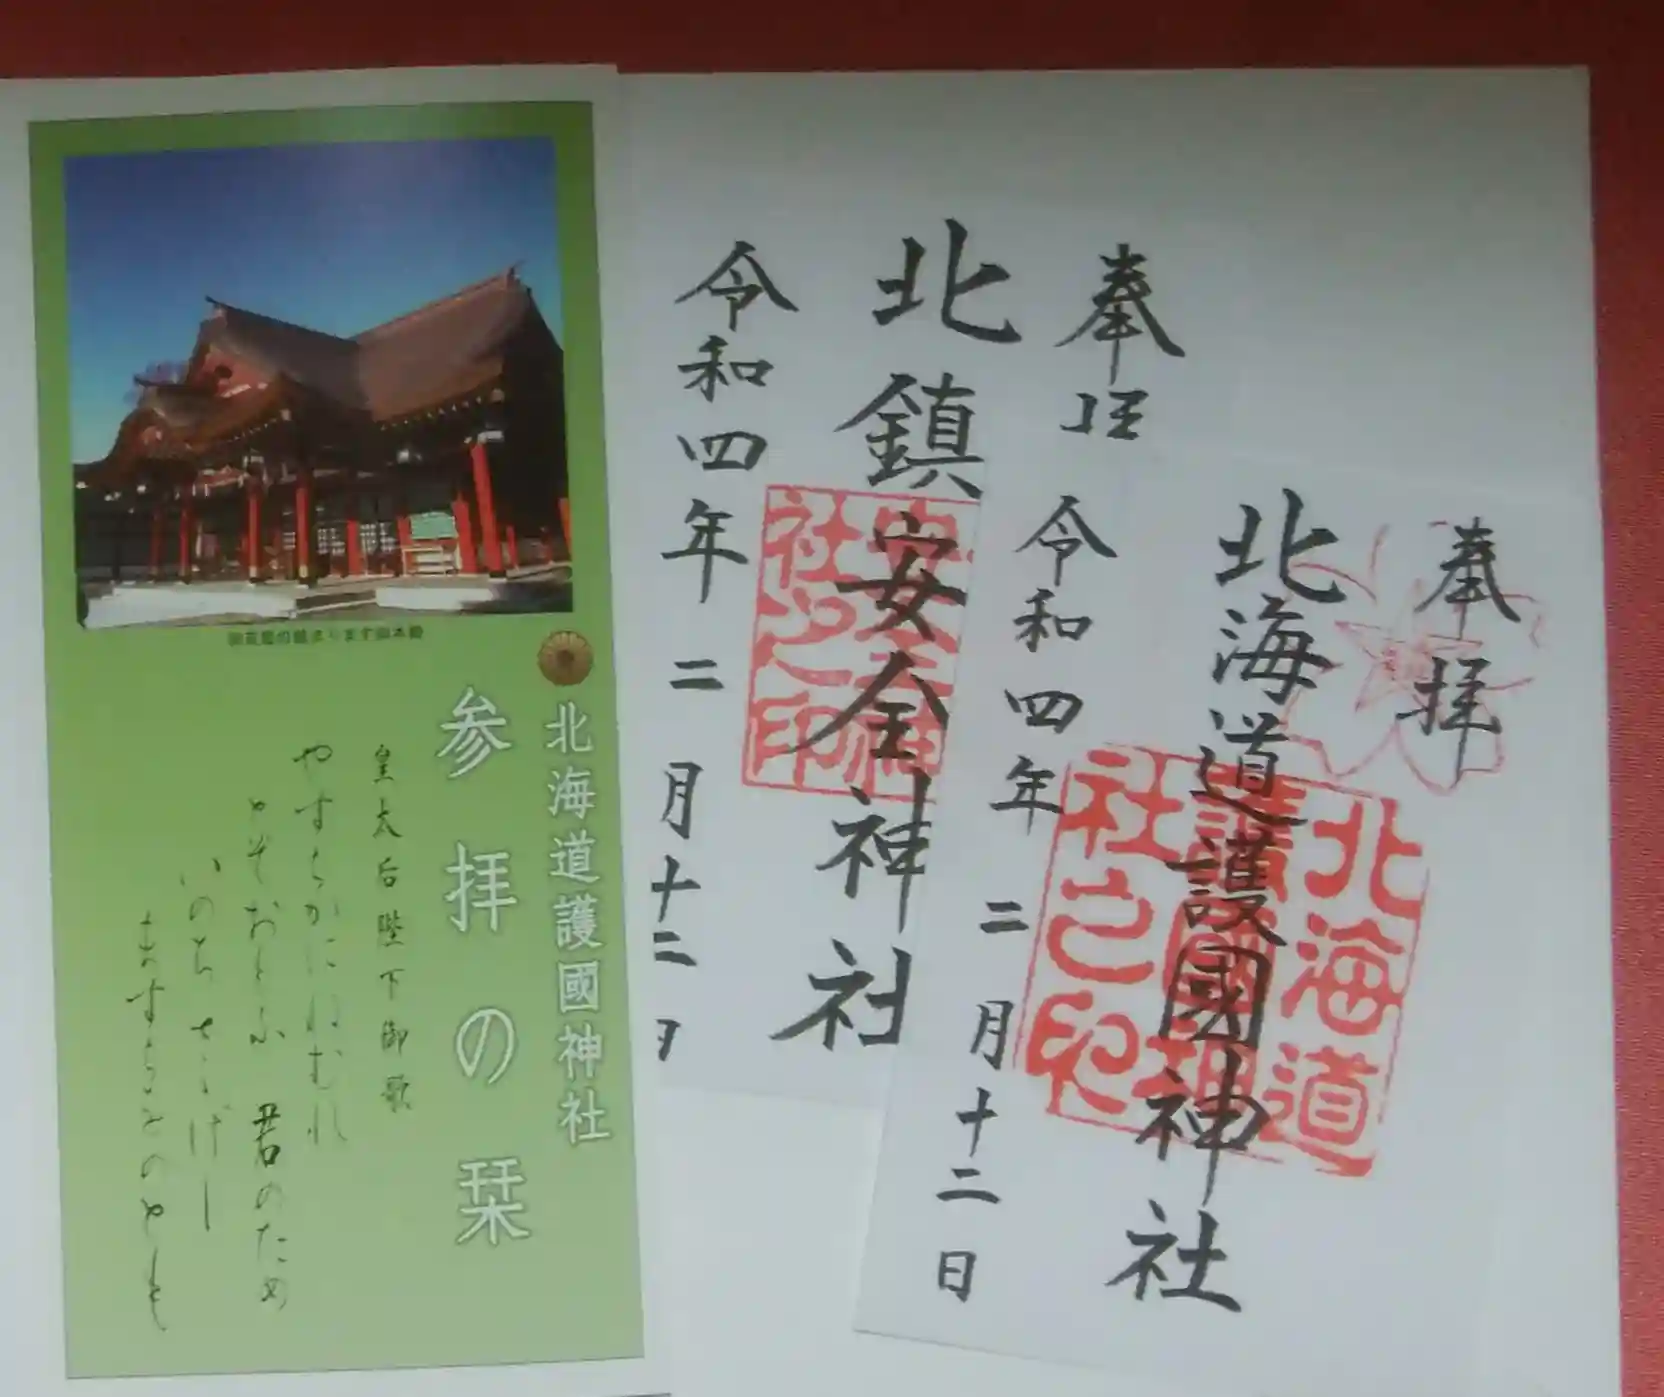 北海道護國神社
参拝の栞
皇太后陛下御歌
やすらかにねむれ
とぞおもふ 君のため
いのちささげし
ますらをのとも
奉拝
北鎮安全神社
令和四年二月十二日
奉拝
北海道護國神社
令和四年二月十二日
北海道
護國神
社之印